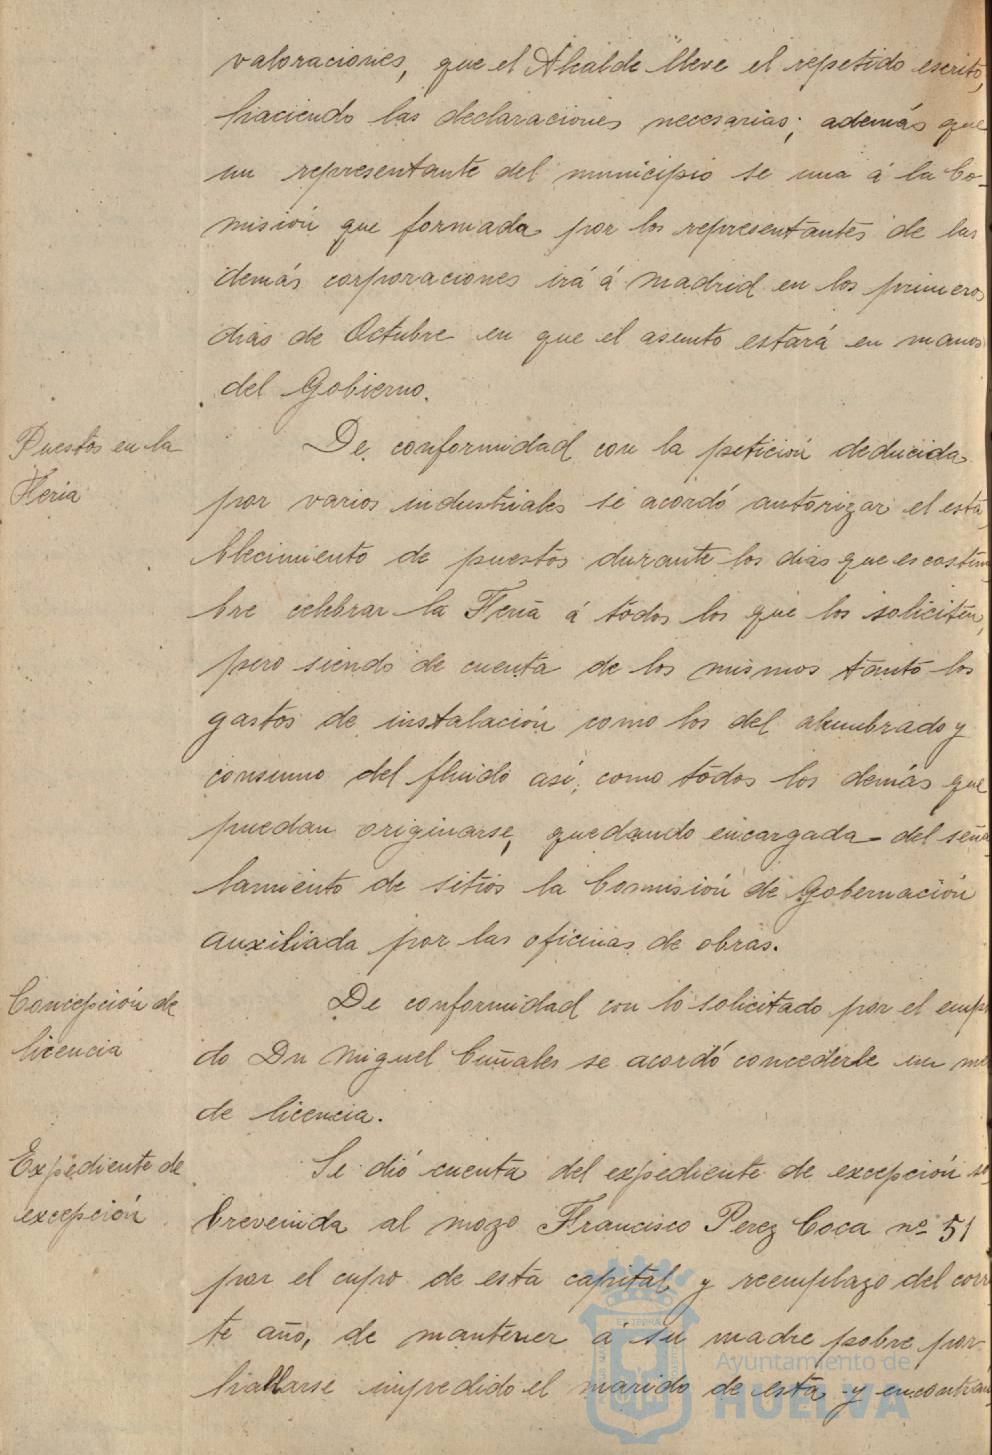 valoraciones, que el Alcalde lleve el repetido escrito,
haciendo las declaraciones necesarias; además que
un representante del municipio se una á la Co-
misión que formada por los representantes de las
demás corporaciones irá á Madrid en los primeros
dias de Octubre en que el asunto estará en manos
del Gobierno.
Puestos en la
Feria
De conformidad con la petición deducida
por varios industriales se acordó autorizar el esta
blecimiento de puestos durante los dias que es costum
bre celebrar la Feria á todos los que los soliciten,
pero siendo de cuenta de los mismos tanto los
gastos de instalación como los del alumbrado y
consumo del fluido así, como todos los demás que
puedan originarse, quedando encargada del seña
lamiento de sitios la Comisión de Gobernación
auxiliada por las oficinas de obras.
Concepción de
licencia
De conformidad con lo solicitado por el emp
do Dn Miguel Cuñales se acordó concederle un me
de licencia.
Expediente de
excepción
Se dió cuenta del expediente de excepción so
brevenida al mozo Francisco Perez Coca nº 51
por el cupo de esta capital y reemplazo del corr
te año, de mantener á su madre pobre por
hallarse impedido el marido de esta y encontran
Ayuntamiento de
HUELVA